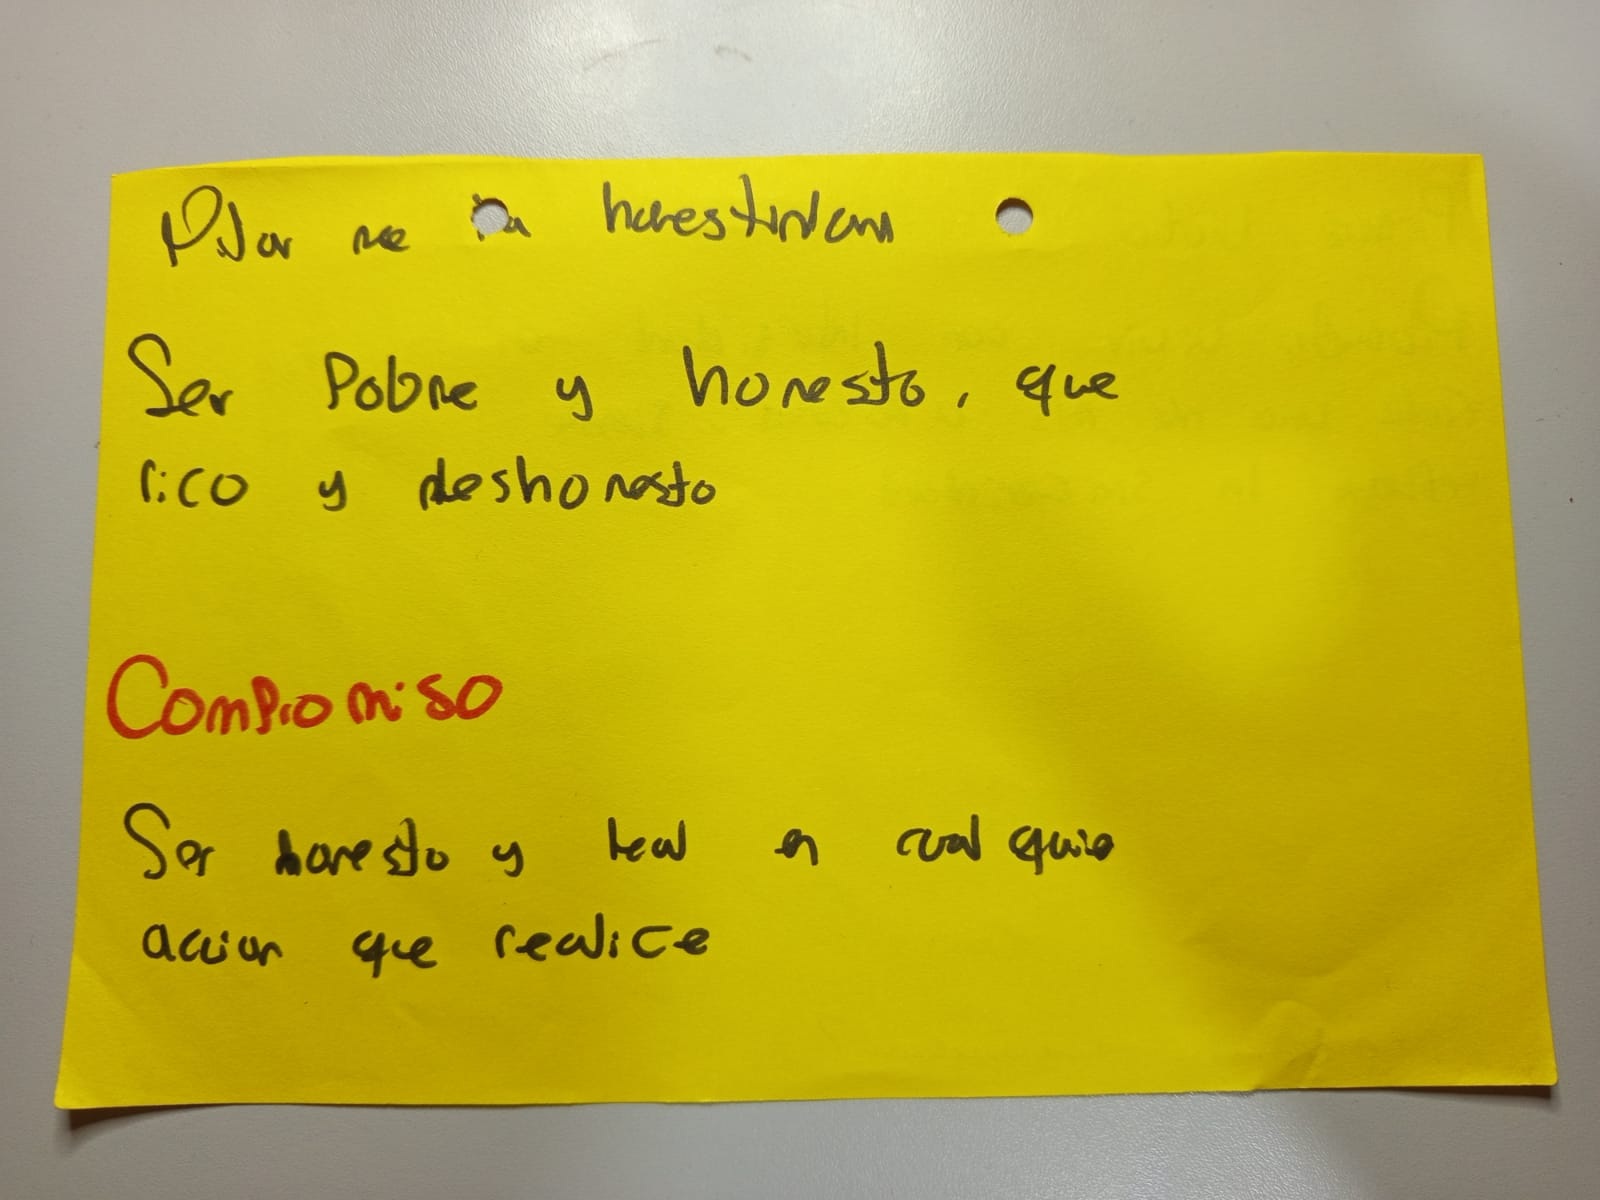 Pilar de la honestidad
Ser Pobre y honesto, que
rico y deshonesto
Compromiso
Ser honesto y leal en cualquie
accion que realice